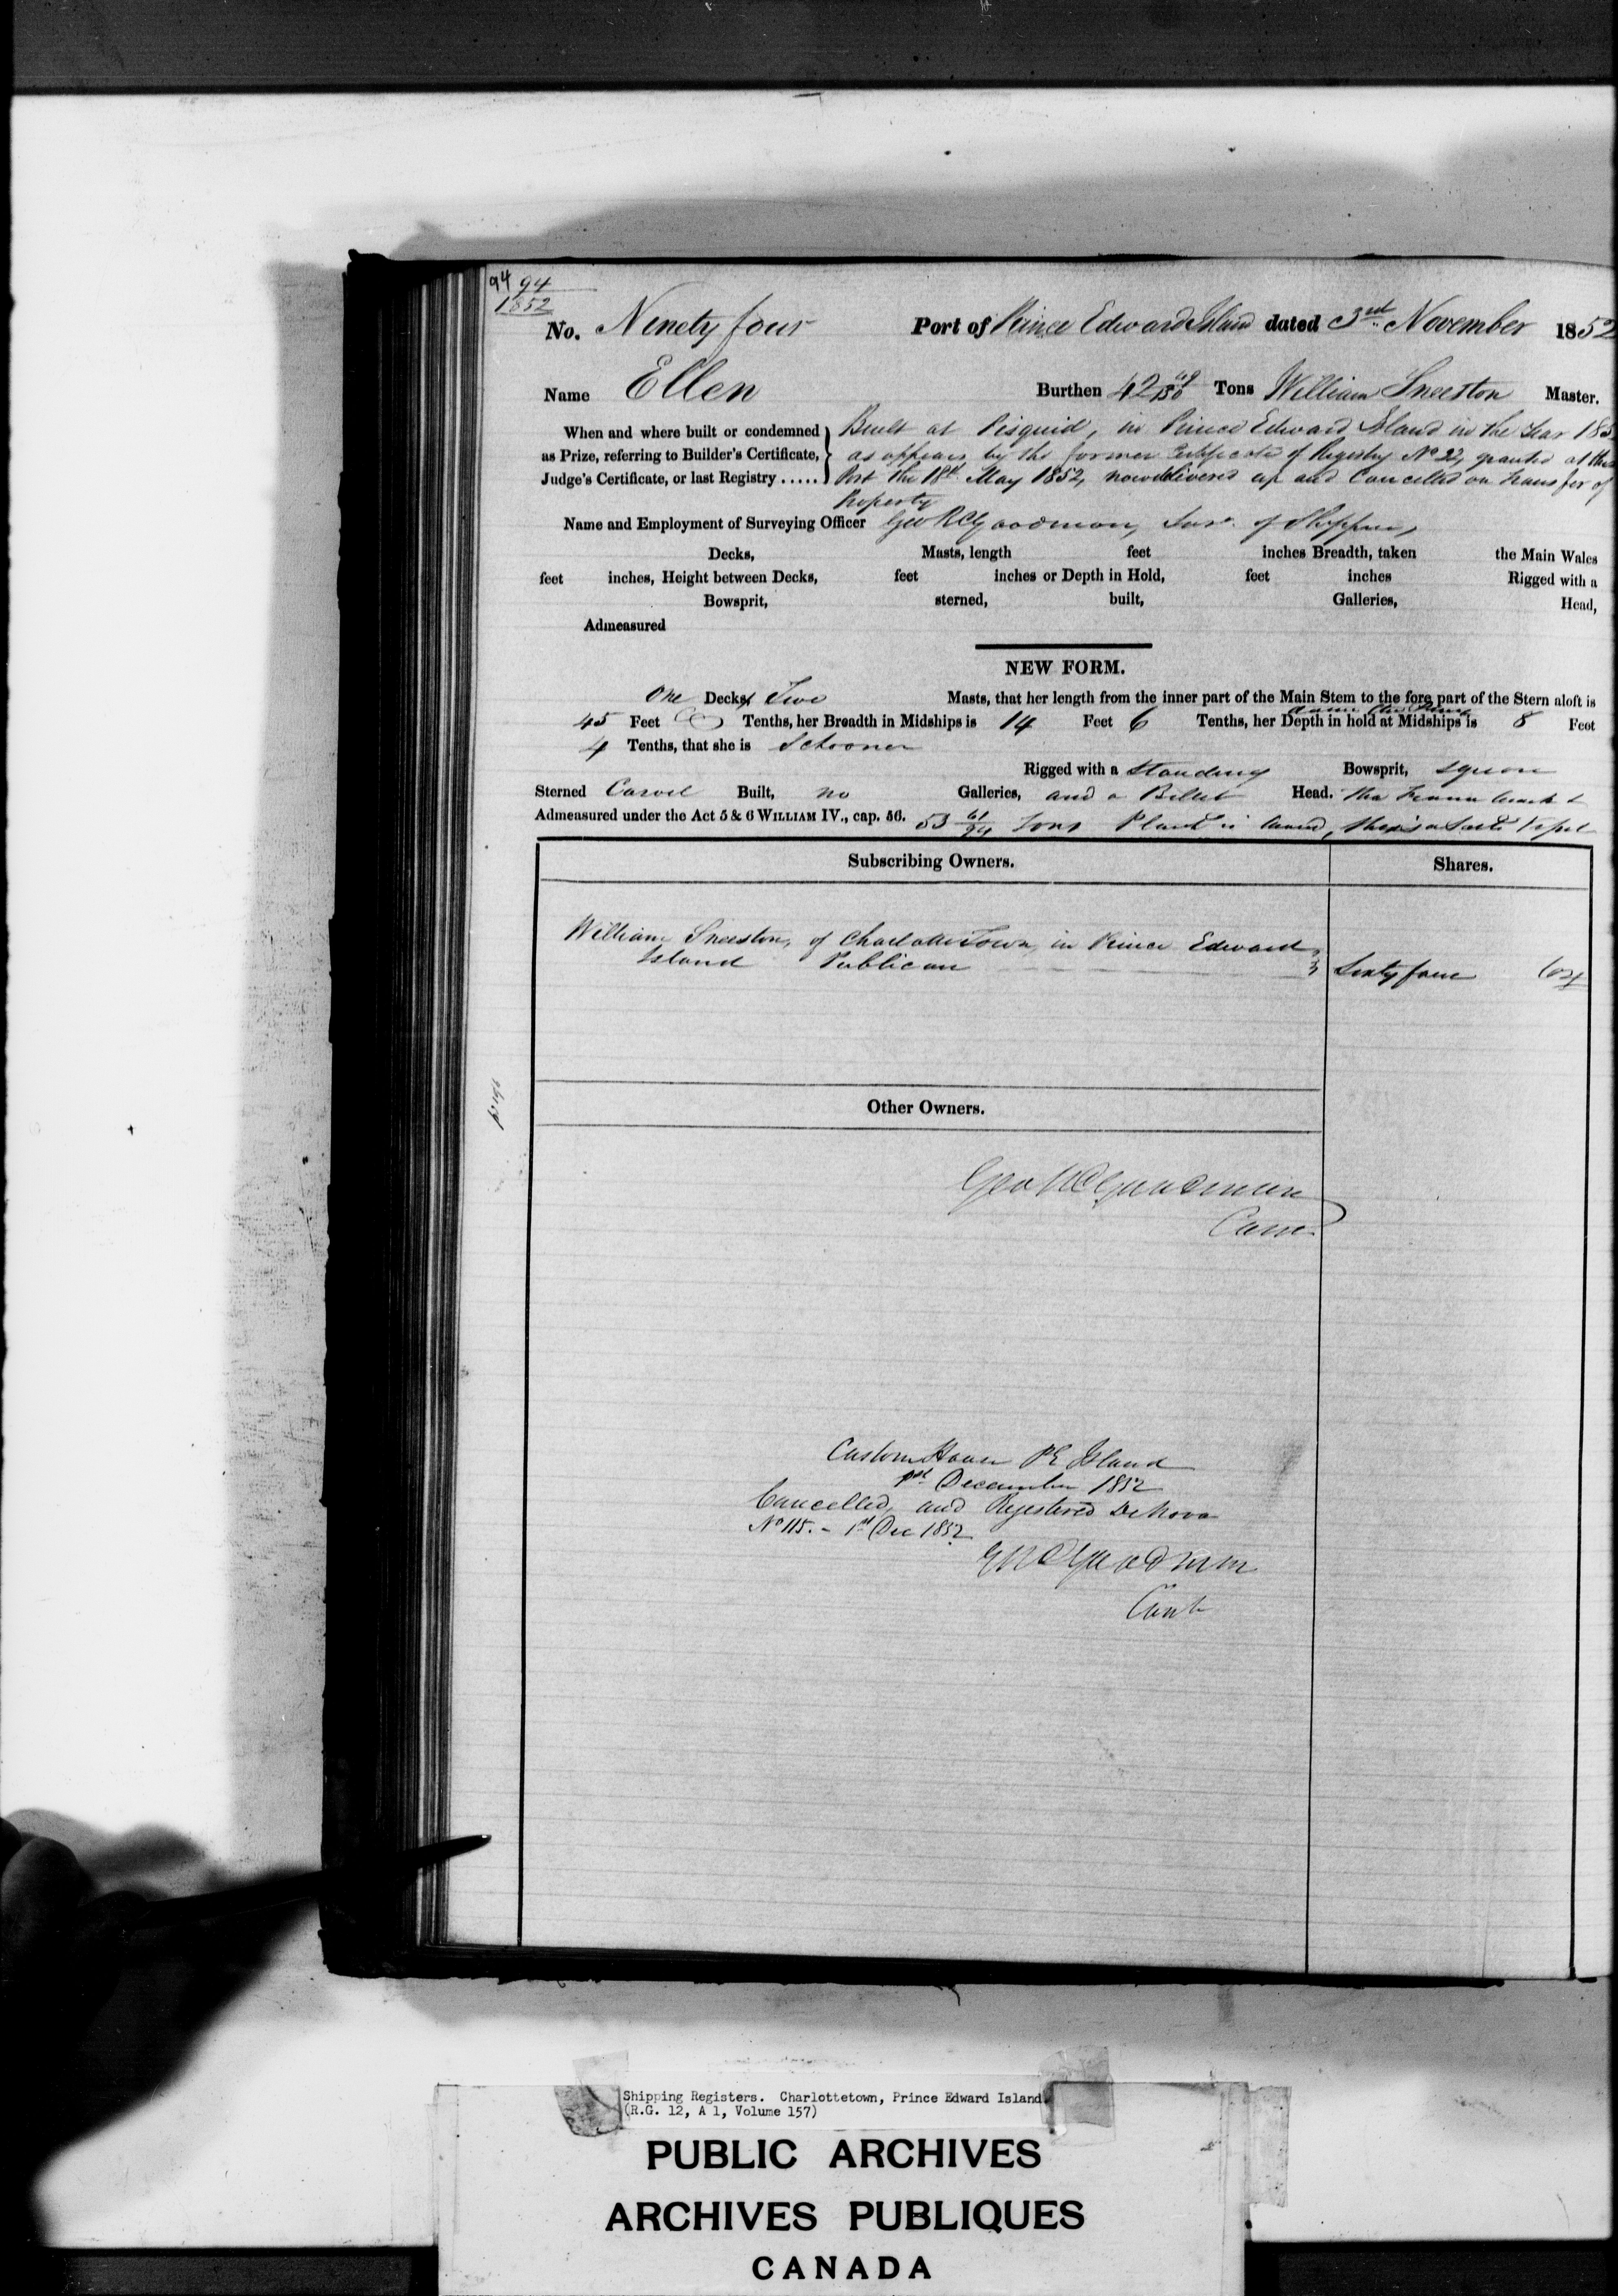 94 94
1852
No. Ninety four Port of Prince Edward Island dated 3rd November 1852
Name Ellen Burthen 42 Tons William Sneeston Master.
When and where built or condemned as Prize, referring to Builder's Certificate, Judge's Certificate, or last Registry .....
Built at Pisquid, in Prince Edward Island in the Year 185
as appears by the former Certificate of Registry No 22, granted at this
Port the 18th May 1852, now delivered up and Cancelled on transfer of
Property
Name and Employment of Surveying Officer Geo R Goodman, of Shipping,
Decks, Masts, length feet inches Breadth, taken the Main Wales
feet inches, Height between Decks, feet inches or Depth in Hold, feet inches Rigged with a
Bowsprit, sterned, built, Galleries, Head,
Admeasured
NEW FORM.
One Decks, Two Masts, that her length from the inner part of the Main Stem to the fore part of the Stern aloft is
45 Feet Tenths, her Breadth in Midships is 14 Feet 6 Tenths, her Depth in hold at Midships is 8 Feet
4 Tenths, that she is Schooner
Rigged with a Standing Bowsprit, square
Sterned Carvel Built, no Galleries, and a Billet Head.
Admeasured under the Act 5 & 6 WILLIAM IV., cap. 56. 53 61/94 Tons
Subscribing Owners. Shares.
William Sneeston, of Charlotte Town, in Prince Edward
Island Publican Sixty four 64
Other Owners.
Geo R Goodman
Custom House PE Island
1st December 1852
Cancelled, and Registered De Novo
No 115. - 1st Dec 1852
G R Goodman
Cont
Shipping Registers. Charlottetown, Prince Edward Island
(R.G. 12, A 1, Volume 157)
PUBLIC ARCHIVES
ARCHIVES PUBLIQUES
CANADA